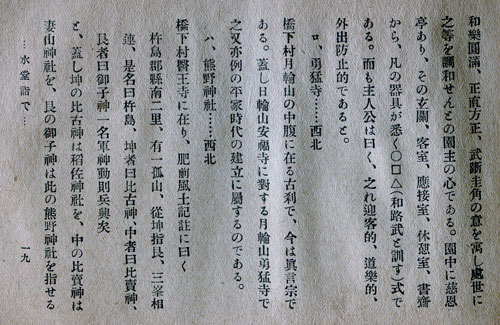 和樂圓滿、正直方正、武斷圭角の意を寓し處世に
之等を調和せんとの園主の心である。園中に慈恩
亭あり、その玄關、客室、應接室、休憩室、書齋
から、凡の器具が悉く〇口△(和路武と訓す)式で
ある。而も主人公は曰く、之れ迎客的、道樂的、
外出防止的であると。
ロ、勇猛寺……西北
橋下村月輪山の中腹に在る古刹で、今は眞言宗で
ある。蓋し日輪山安福寺に對する月輪山勇猛寺で
之又亦例の平家時代の建立に屬するのである。
ハ、熊野神社……西北
橋下村醫王寺に在り、肥前風土記註に曰く
杵島郡縣南二里、有一孤山、從坤指艮、三峯相
連、是名曰杵島、坤者曰比古神、中者曰比賣神、
艮者曰御子神一名軍神動則兵興矣
と、蓋し坤の比古神は稻佐神社を、中の比賣神は
妻山神社を、艮の御子神は此の熊野神社を指せる
…水堂詣で…
一九